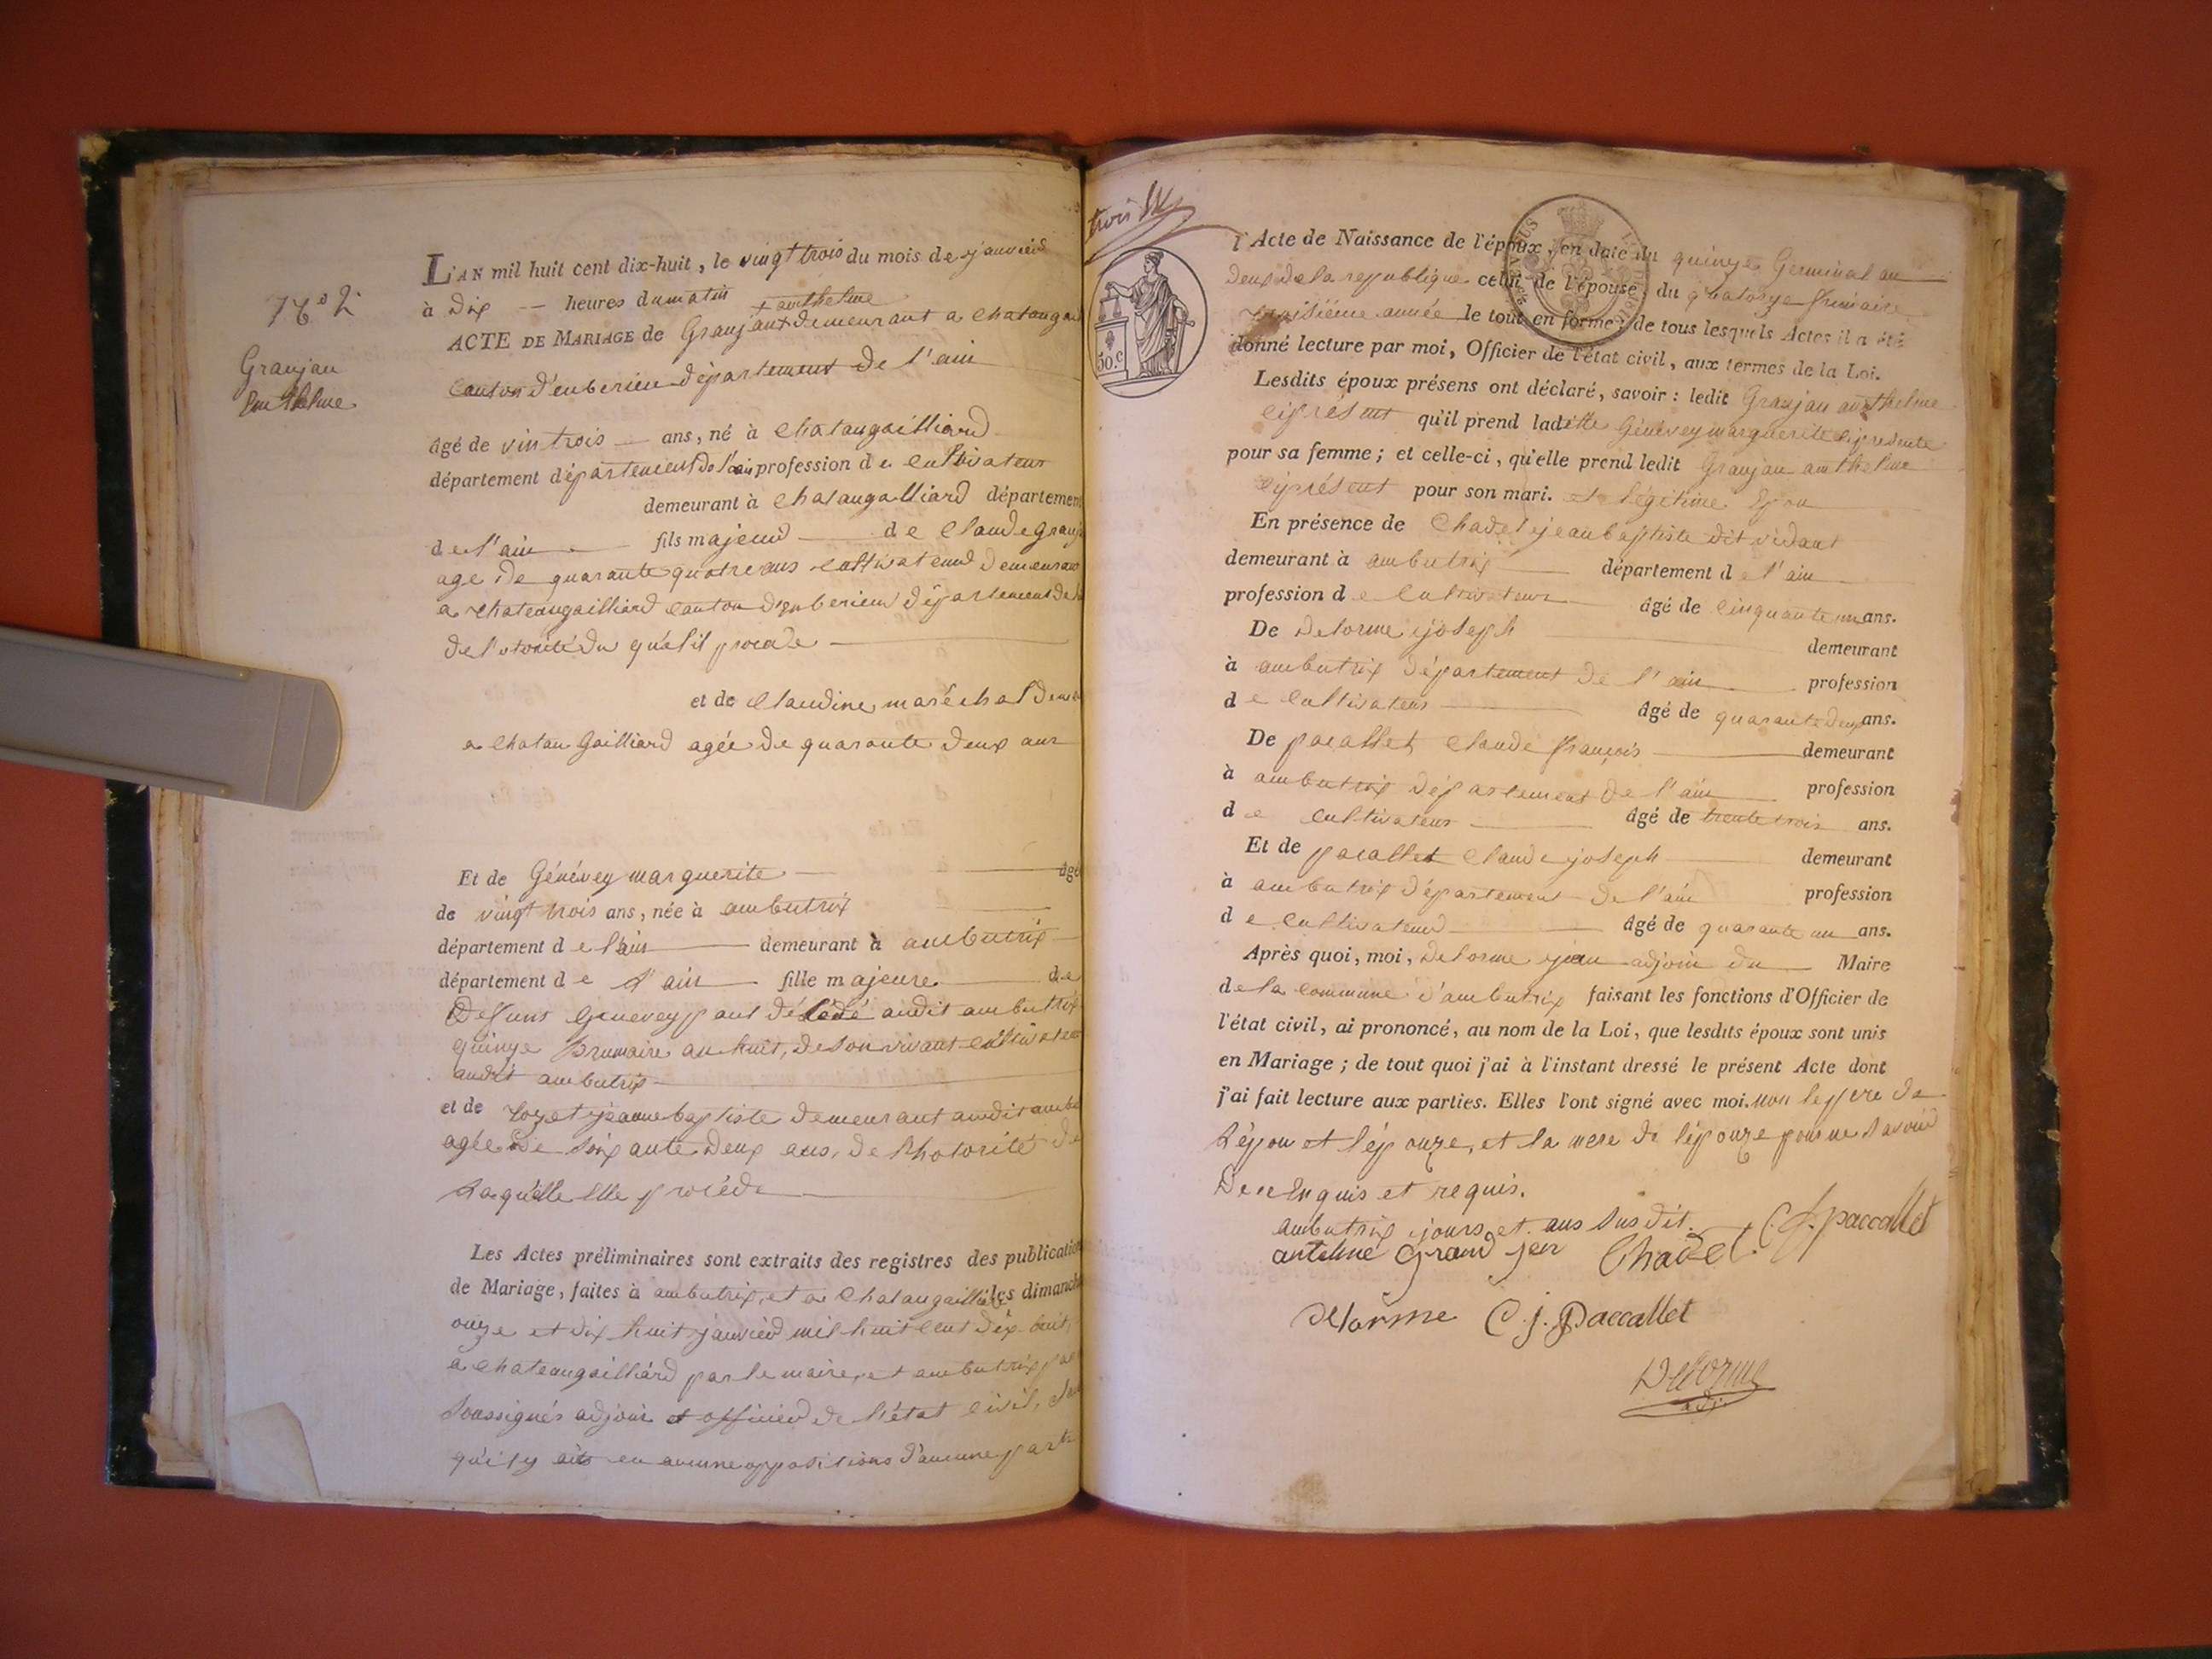 N.º 2
Granjan
Anthelme
L'AN mil huit cent dix-huit, le vingt trois du mois de janvier
à dix heures du matin + anthelme
ACTE DE MARIAGE de Granjant + demeurant a Chatauga
Canton d'enberieu département de l'ain
âgé de vintrois ans, né à Chataugailliard
département département de l'ain profession de Cultivateur
demeurant à Chataugalliard département
de l'ain fils majeur de Claude Granj
age de quarante quatre ans cultivateur demeurant
a Chateaugailliard canton d'enberieu département de
de l'otorité du quel il procède
et de Claudine maréchal
a Chatau Gailliard agée de quarante deux ans
Et de Génévey marguerite âgé
de vingt trois ans, née à ambutrix
département de l'ain demeurant à ambutrix
département de l'ain fille majeure de
Defunt Genevey paul décédé audit ambutrix
quinze brumaire an huit, de son vivant cultivateur
audit ambutrix
et de Jeanne baptiste demeurant audit ambu
agée de soixante deux ans, de l'hotorité de
Laquelle Elle procède
Les Actes préliminaires sont extraits des registres des publication
de Mariage, faites à ambutrix, et a Chataugailliard les dimanch
onze et dix huit janvier mil huit cent dix huit,
a Chateaugailliard par le maire, et ambutrix par
Soussignés adjoin et officier de l'état civil, sans
qu'il y aits eu aucune oppositions d'aucune part
trois
50.c
l'Acte de Naissance de l'époux, en date du quinze Germinal an
Deux de la republique celui de l'épouse, du quatorze frimaire
troisième année le tout en forme; de tous lesquels Actes il a été
donné lecture par moi, Officier de l'état civil, aux termes de la Loi.
Lesdits époux présens ont déclaré, savoir: ledit Granjan anthelme
ciprésent qu'il prend ladite Génévey marguerite cipresente
pour sa femme; et celle-ci, qu'elle prend ledit Granjan anthelme
ciprésent pour son mari. et légitime Epou
En présence de Chadel jean baptiste dit vidant
demeurant à ambutrix département de l'ain
profession de Cultivateur âgé de cinquante un ans.
De Delorme joseph demeurant
à ambutrix département de l'ain profession
de Cultivateur âgé de quarante deux ans.
De pacallet Claude françois demeurant
à ambutrix département de l'ain profession
de cultivateur âgé de trente trois ans.
Et de pacallet Claude joseph demeurant
à ambutrix département de l'ain profession
de Cultivateur âgé de quarante un ans.
Après quoi, moi, Delorme jean adjoin du Maire
de la commune d'ambutrix faisant les fonctions d'Officier de
l'état civil, ai prononcé, au nom de la Loi, que lesdits époux sont unis
en Mariage; de tout quoi j'ai à l'instant dressé le présent Acte dont
j'ai fait lecture aux parties. Elles l'ont signé avec moi. non le pere de
L'épou et l'épouze, et la mere de l'épouze pour ne savoir
De ce Enquis et requis.
ambutrix jours et ans susdit.
antelme Grand jen Chadel. C. f. paccallet
delorme C. j. Paccallet
Delorme
adj.